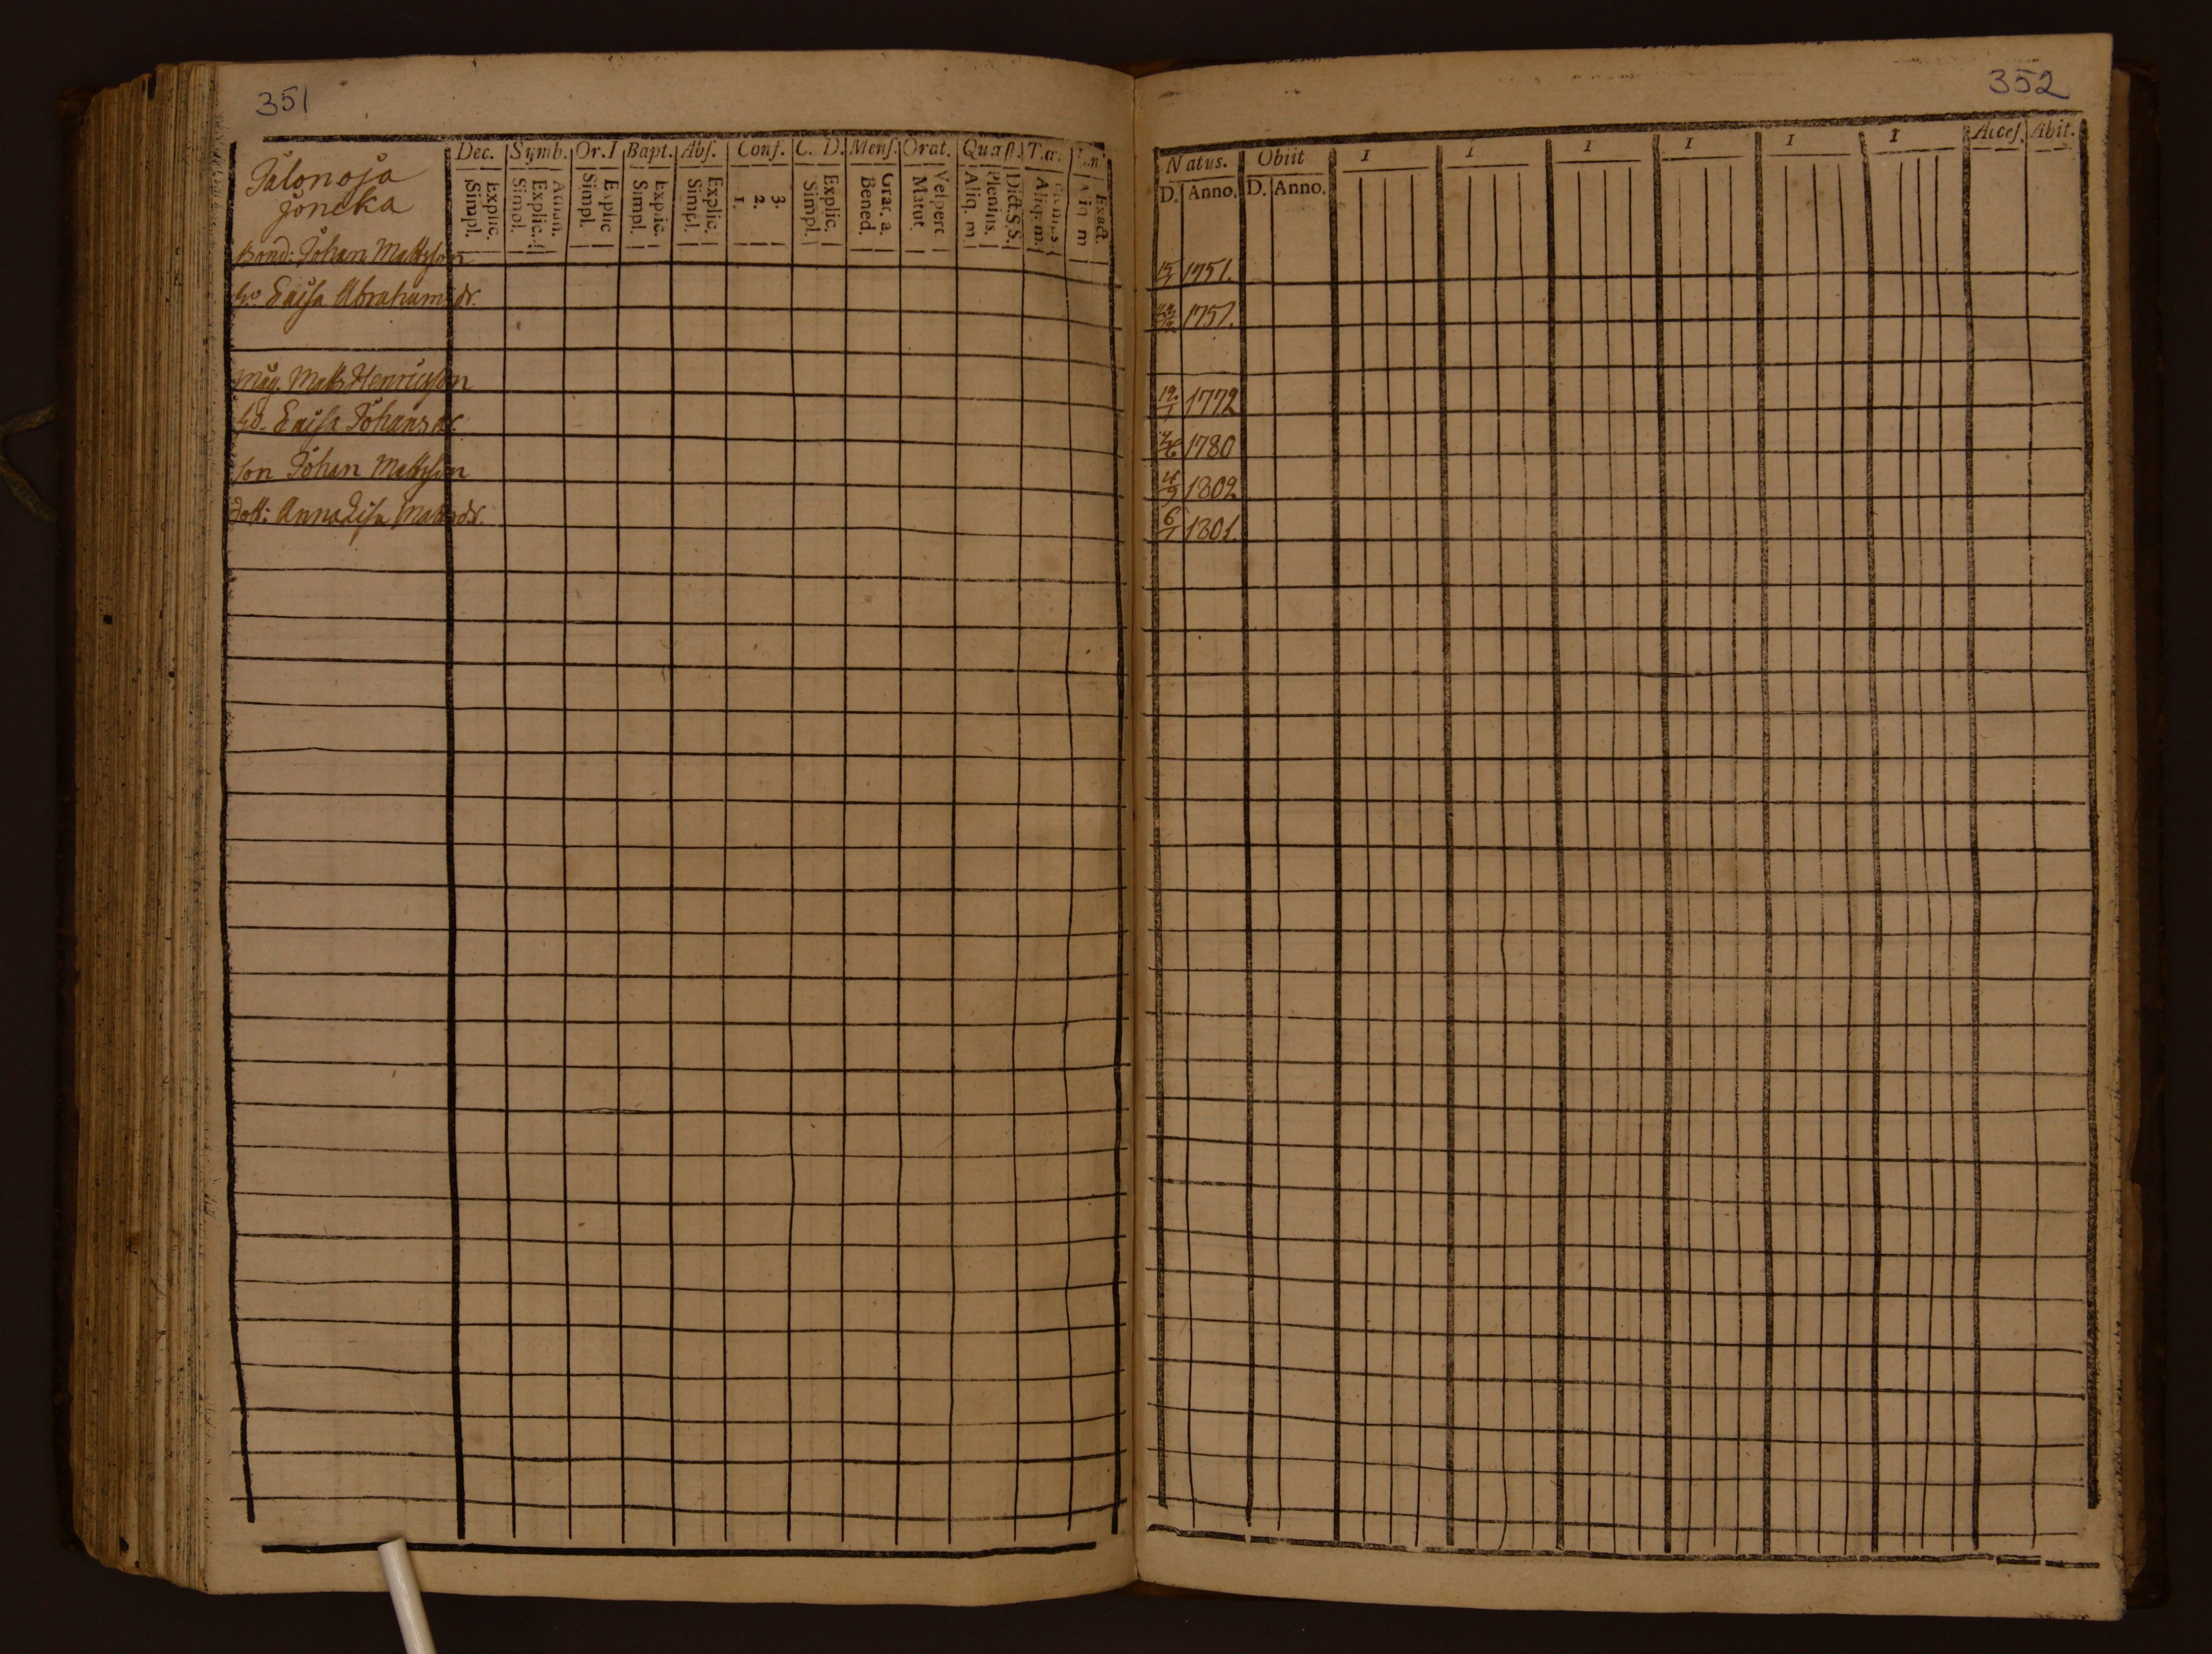 351
Dec. Symb. Or. I Bapt. Abs. Conf. C. D. Mens. Orat. Quæst. T.æ.
Simpl. Explic. Simpl. Explic. Simpl. Explic Simpl. Explic. Simpl. Explic. 1. 2. 3. Simpl. Explic. Bened. Grat. a. Matut. Vespert Aliq. m. Plenius. Dict. S.S. Aliq. m. Exact.
Jalonoja
Jöncka
Bond: Johan Mattsson
hu Caisa Abrahamsdr.
Måg. Matts Henricsson
hu. Caisa Johansdr.
Son Johan Mattsson
dott: Anna Lisa Mattsdr.
352
Natus. Obiit I I I I I I Acces. Abit.
D. Anno. D. Anno.
1751.
1757.
19/1 1772
1780
4/9 1802
6/1 1801.